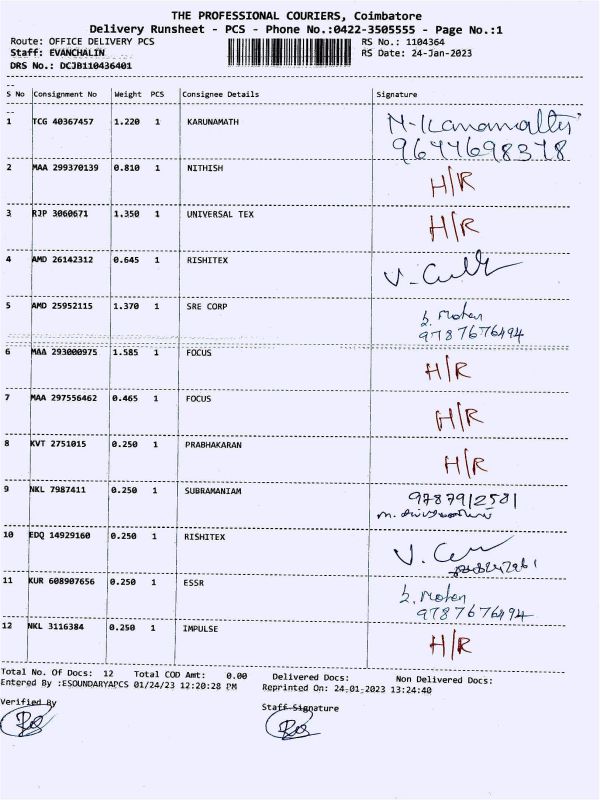 THE PROFESSIONAL COURIERS, Coimbatore
Delivery Runsheet - PCS - Phone No.:0422-3505555 - Page No.:1
Route: OFFICE DELIVERY PCS RS No.: 1104364
Staff: EVANCHALIN RS Date: 24-Jan-2023
DRS No.: DCJB110436401
S No Consignment No Weight PCS Consignee Details Signature
1 TCG 40367457 1.220 1 KARUNAMATH
9644698378
2 MAA 299370139 0.810 1 NITHISH H/R
3 RJP 3060671 1.350 1 UNIVERSAL TEX H/R
4 AMD 26142312 0.645 1 RISHITEX
5 AMD 25952115 1.370 1 SRE CORP
9787676494
6 MAA 293000975 1.585 1 FOCUS H/R
7 MAA 297556462 0.465 1 FOCUS H/R
8 KVT 2751015 0.250 1 PRABHAKARAN H/R
9 NKL 7987411 0.250 1 SUBRAMANIAM 9787912581
10 EDQ 14929160 0.250 1 RISHITEX
11 KUR 608907656 0.250 1 ESSR
9787676494
12 NKL 3116384 0.250 1 IMPULSE H/R
Total No. Of Docs: 12 Total COD Amt: 0.00 Delivered Docs: Non Delivered Docs:
Entered By :ESOUNDARYAPCS 01/24/23 12:20:28 PM Reprinted On: 24-01-2023 13:24:40
Verified By Staff Signature